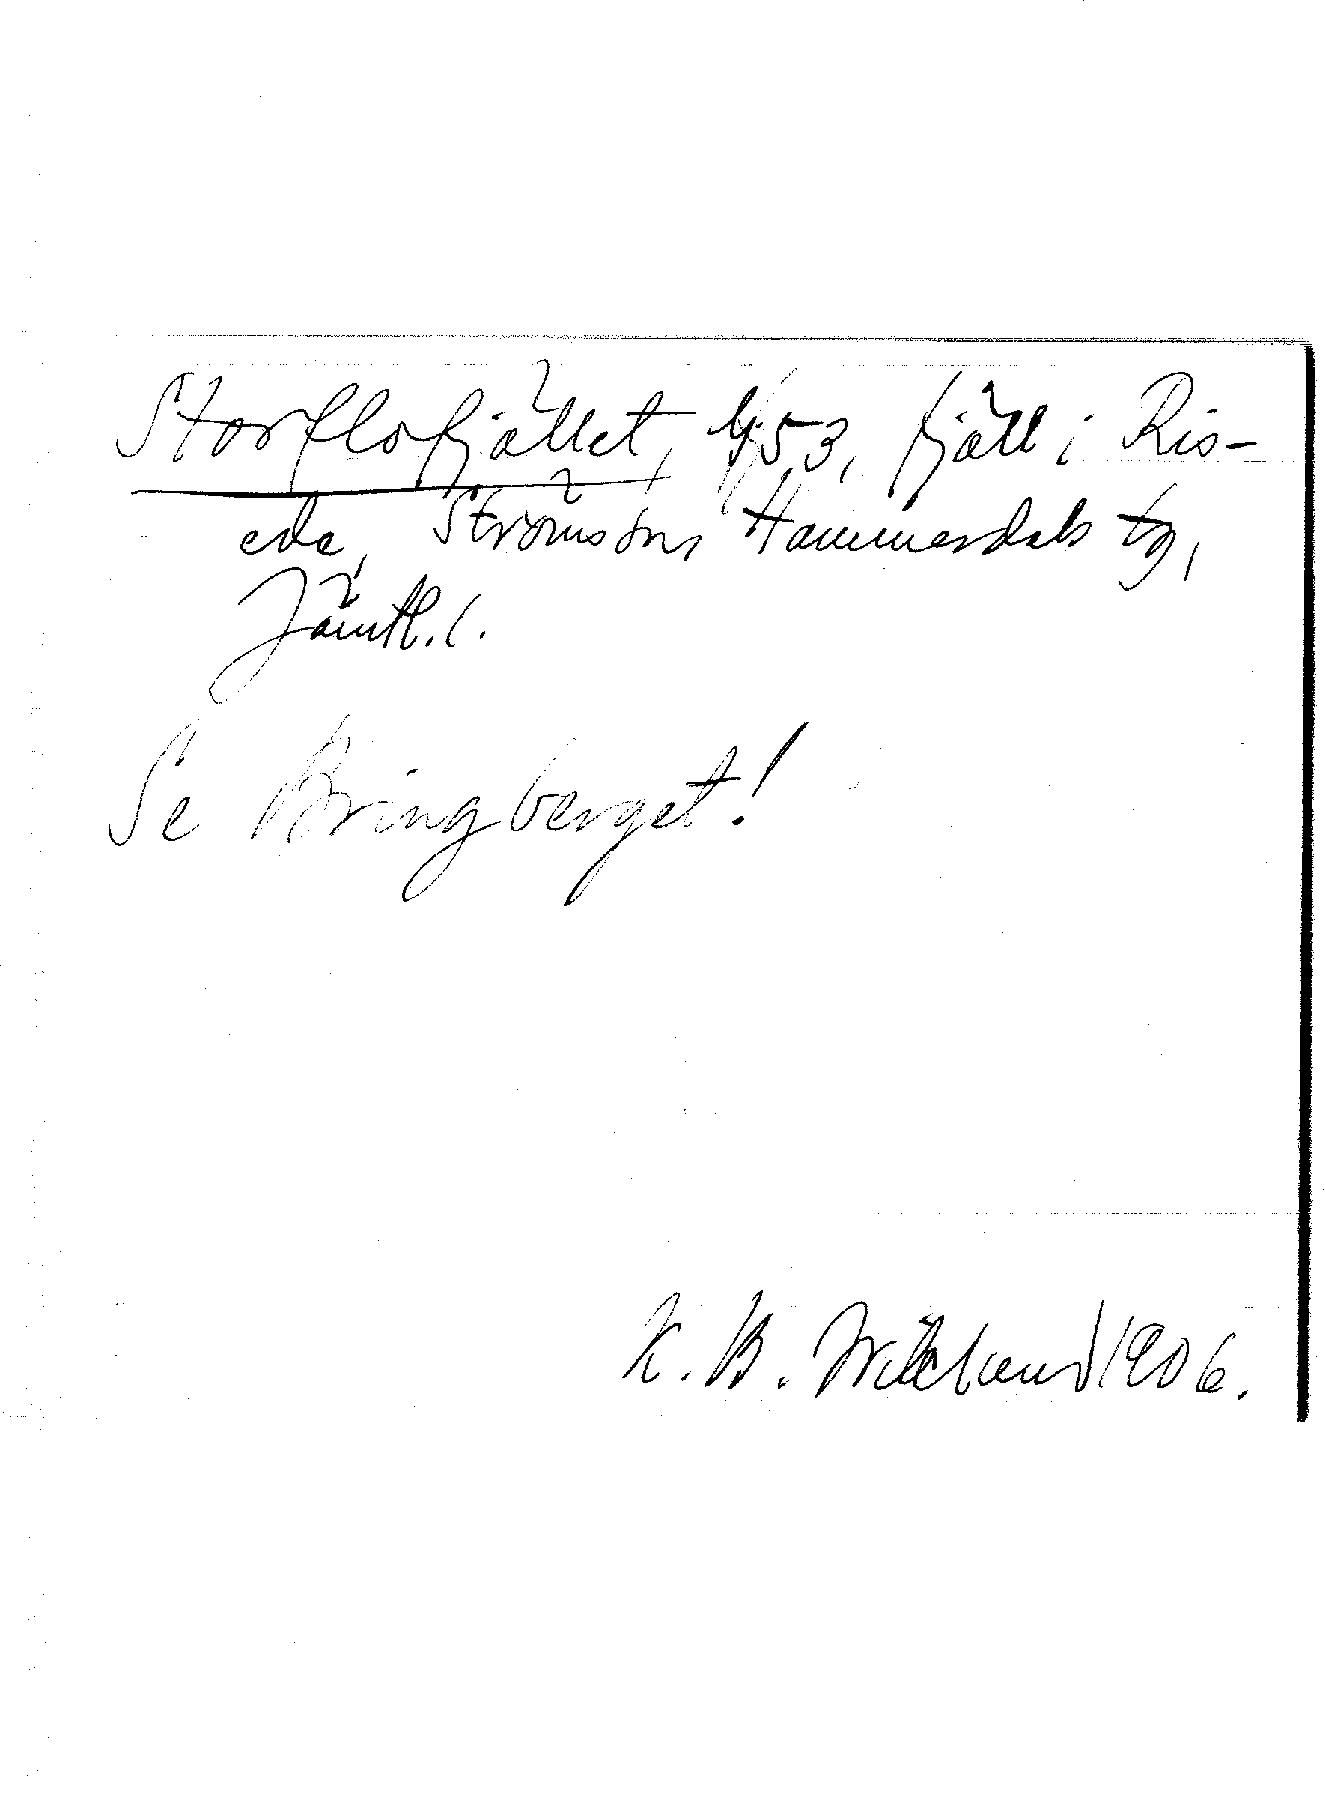 Storflofjället, 453, fjäll i Ris-
ede, Ströms sn, Hammerdals tg,
Jämtl. l.
Se Bringberget!
K. B. Wiklund 1906.